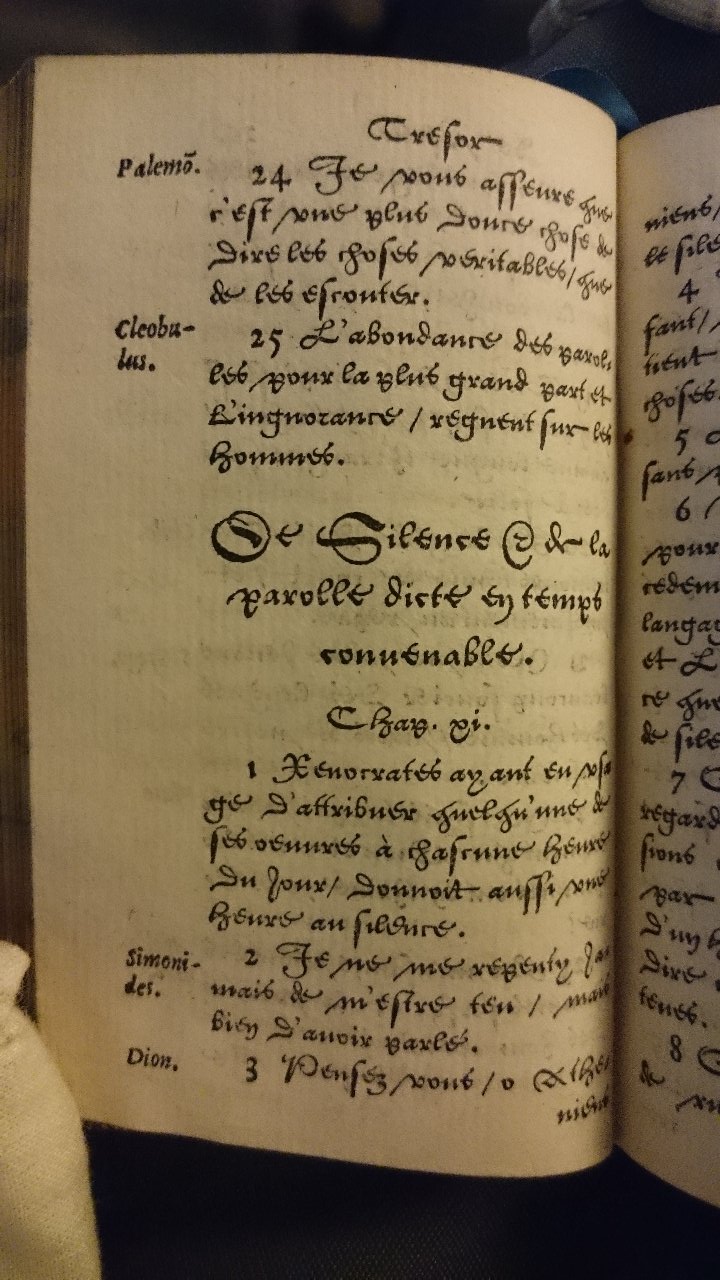 Tresor
Palemō. 24 Je vous asseure que
c'est vne plus douce chose de
dire les choses veritables/ que
de les escouter.
Cleobu-
lus. 25 L'abondance des parol-
les pour la plus grand part et
L'ingnorance / regnent sur les
hommes.
De Silence & de la
parolle dicte en temps
conuenable.
Chap. xi.
1 Xenocrates ayant en vsa
ge d'attribuer quelqu'une de
ses oeuures à chascune heure
du Jour/ donnoit aussi vne
heure au silence.
Simoni-
des. 2 Je ne me repenty Ja
mais de m'estre teu / mais
bien d'auoir parlé.
Dion. 3 Pensez vous / o Athe
niens
niens/
le sile
4
fant/
tient
choses.
5
sans
6
pour
cedem
langag
et L
ce que
de sile
7
regard
sions
par
d'un
dire
tenes.
8
de